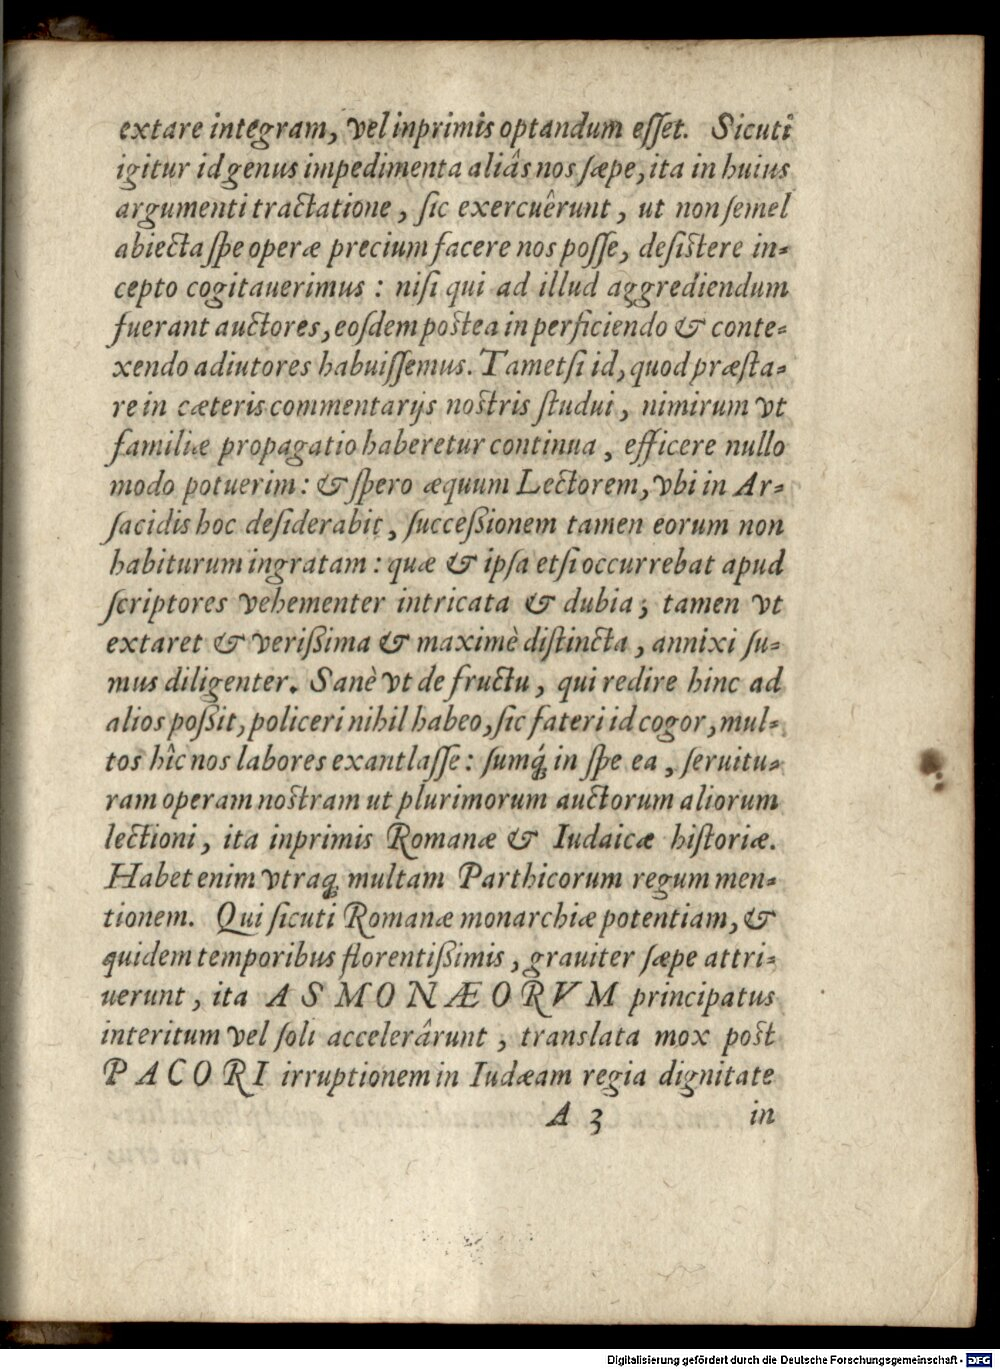 extare integram, vel inprimis optandum esſet. Sicuti
igitur id genus impedimenta aliâs nos ſæpe, ita in huius
argumenti tractatione, ſic exercuêrunt, ut non ſemel
abiecta ſpe operæ precium facere nos poſſe, deſiſtere in-
cepto cogitauerimus: niſi qui ad illud aggrediendum
fuerant auctores, eoſdem poſtea in perficiendo & conte-
xendo adiutores habuiſſemus. Tametſi id, quod præſta-
re in cæteris commentarijs noſtris ſtudui, nimirum vt
familiæ propagatio haberetur continua, efficere nullo
modo potuerim: & ſpero æquum Lectorem, vbi in Ar-
ſacidis hoc deſiderabit, ſucceßionem tamen eorum non
habiturum ingratam: quæ & ipſa etſi occurrebat apud
ſcriptores vehementer intricata & dubia; tamen vt
extaret & verißima & maximè diſtincta, annixi ſu-
mus diligenter. Sanè vt de fructu, qui redire hinc ad
alios poßit, policeri nihil habeo, ſic fateri id cogor, mul-
tos hîc nos labores exantlaſſe: ſumq́; in ſpe ea, ſeruitu-
ram operam noſtram ut plurimorum auctorum aliorum
lectioni, ita inprimis Romanæ & Iudaicæ hiſtoriæ.
Habet enim vtraq; multam Parthicorum regum men-
tionem. Qui ſicuti Romanæ monarchiæ potentiam, &
quidem temporibus florentißimis, grauiter ſæpe attri-
uerunt, ita ASMONÆORVM principatus
interitum vel ſoli accelerârunt, translata mox poſt
PACORI irruptionem in Iudæam regia dignitate
A 3 in
Digitalisierung gefördert durch die Deutsche Forschungsgemeinschaft - DFG